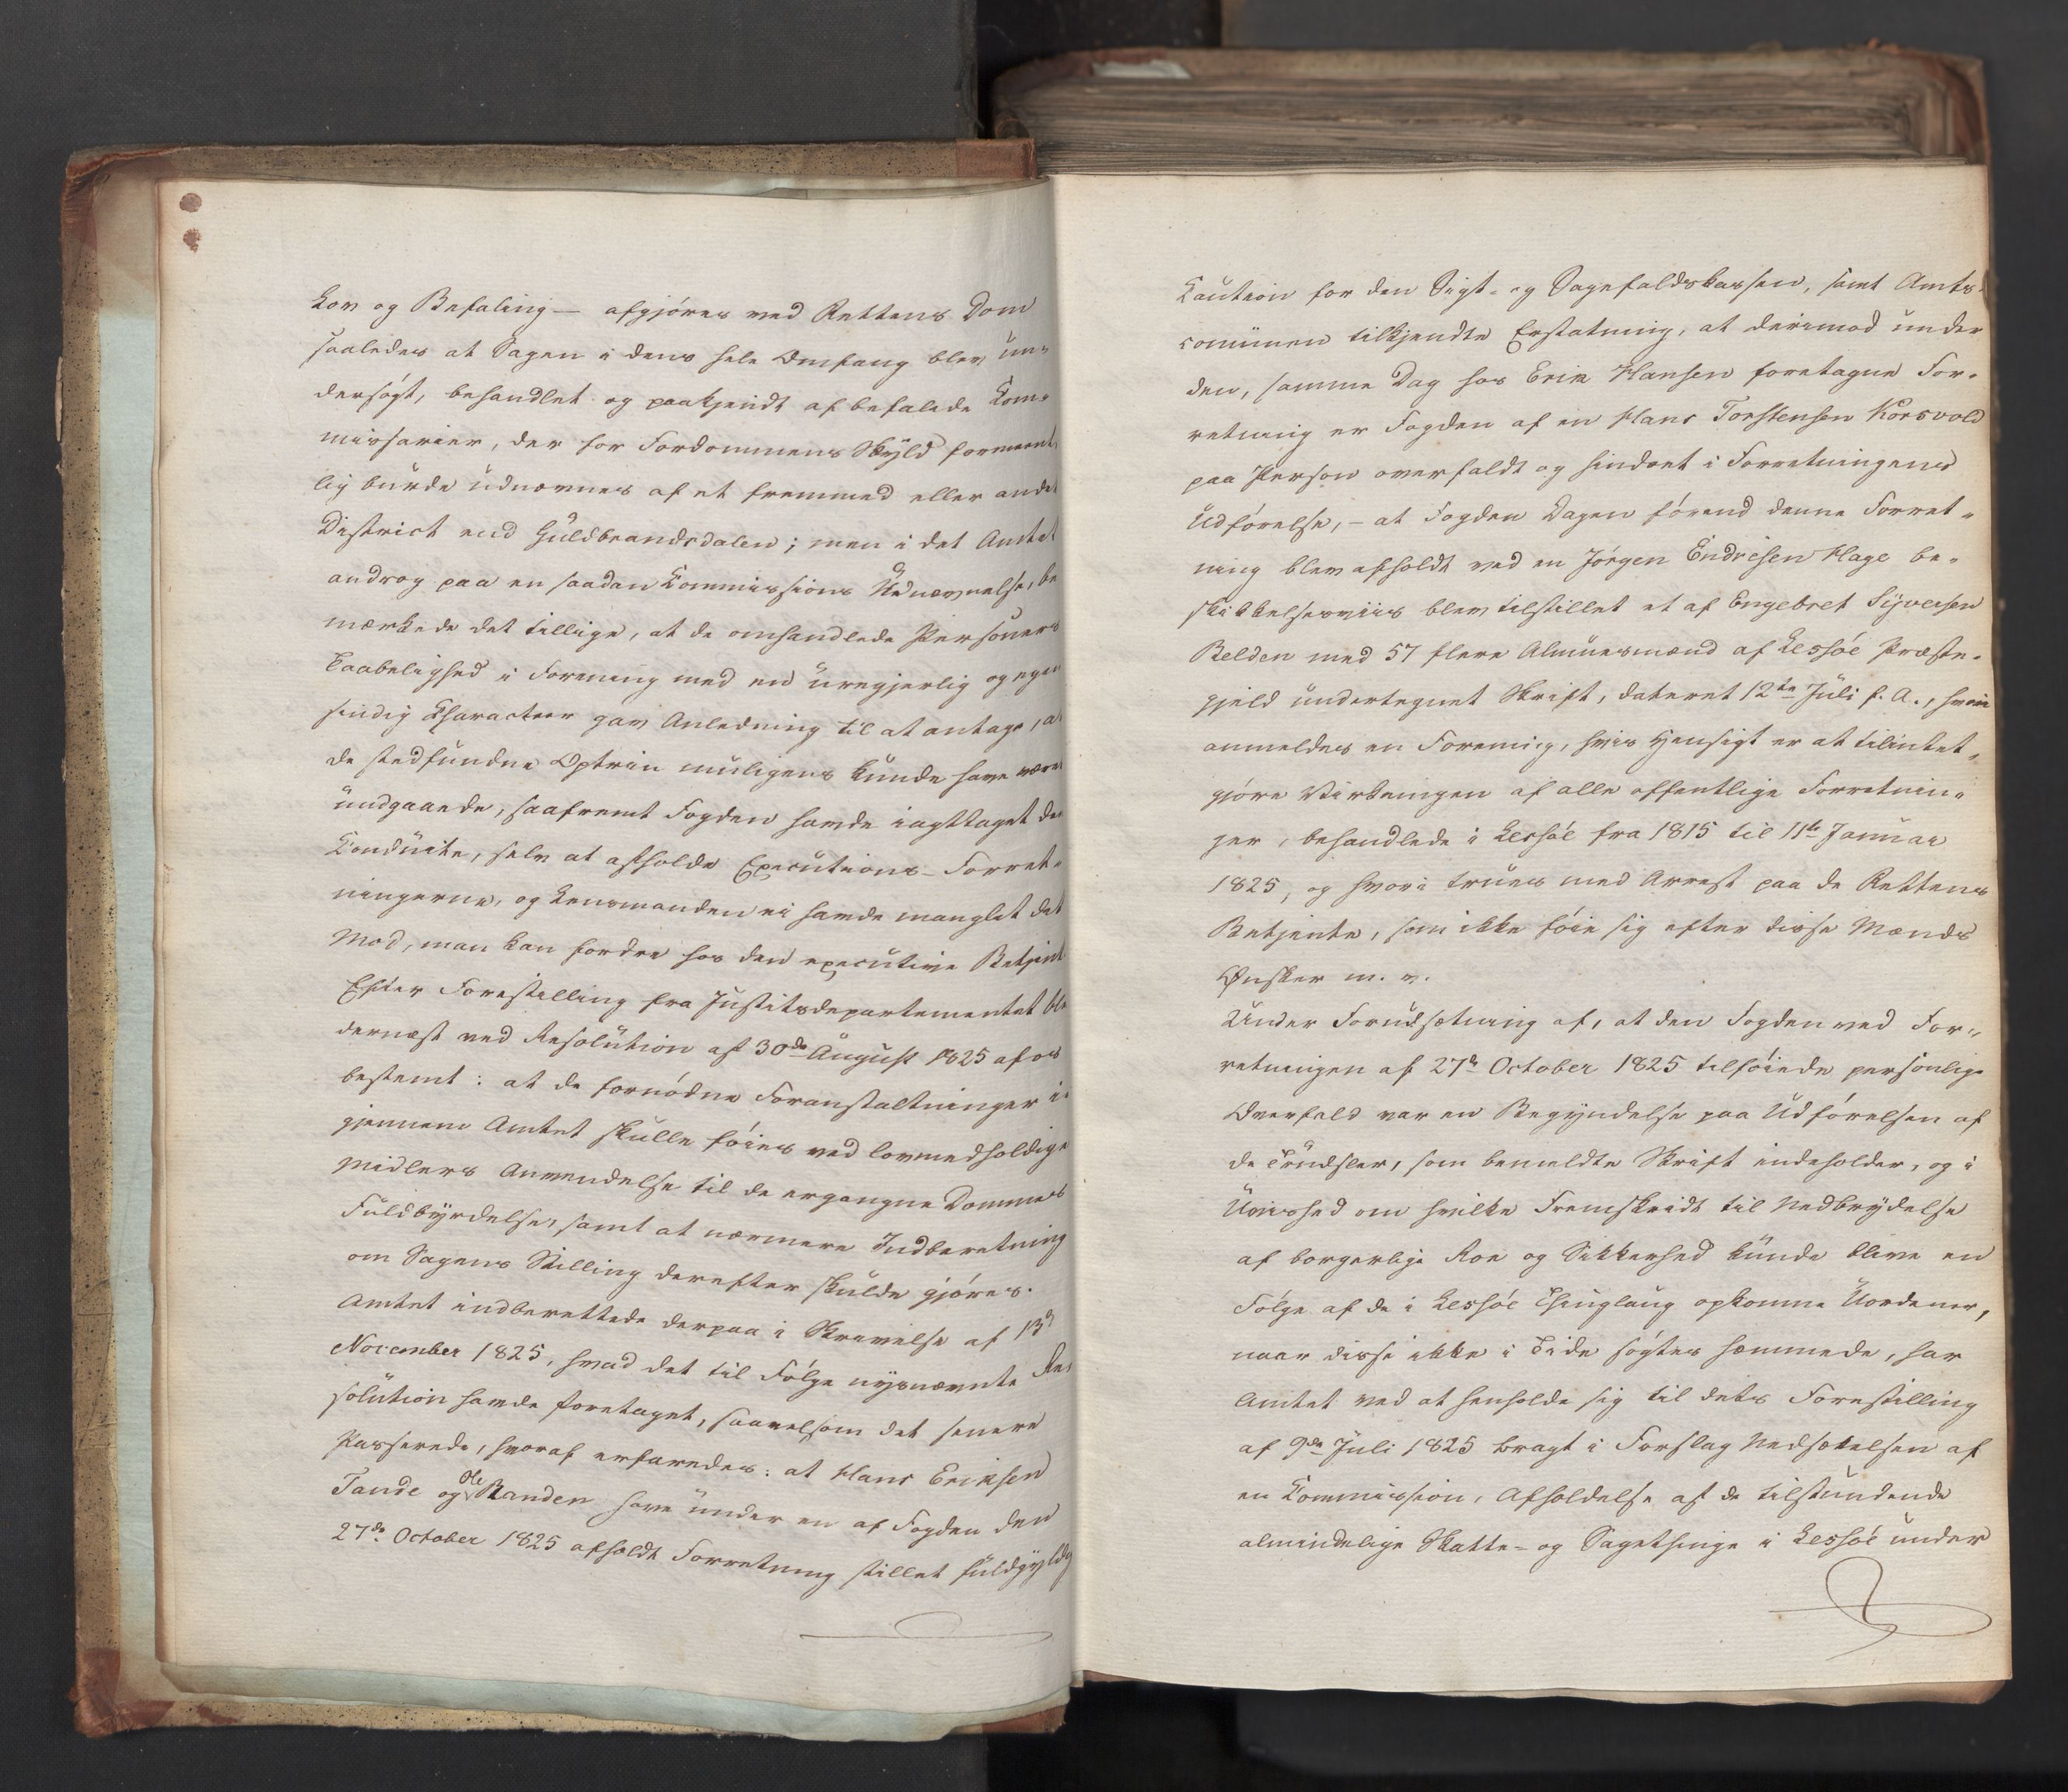 Lov og Befaling — afgjøres ved Rettens Dom
saaledes at Sagen i dens hele Omfang blev un-
dersøgt, behandlet og paakjendt af befalede Kom-
missarier, der for Fordommens Skyld formeent-
lig burde udnævnes af et fremmed eller andet
District end Guldbrandsdalen; men i det Amtet
androg paa en saadan Kommissions Udnævnelse, be
mærkede det tillige, at de omhandlede Personers
Taabelighed i Forening med en uregjerlig og egen
sindig Characteer gav Anledning til at antage, at
de stedfundne Optrin muligens kunde have være
undgaaede, saafremt Fogden havde iagttaget den
Conduite, selv at afholde Executions-Forret-
ningerne, og Lensmanden ei havde manglet det
Mod, man kan fordre hos den executive Betjent
Efter Forestilling fra Justitsdepartementet ble
dernæst ved Resolution af 30de August 1825 af os
bestemt: at de fornødne Foranstaltninger i-
gjennem Amtet skulle føies ved lovmedholdige
Midlers Anvendelse til de ergangne Dommes
Fuldbyrdelse, samt at nærmere Indberetning
om Sagens Stilling derefter skulde gjøres.
Amtet indberettede derpaa i Skrivelse af 13d
November 1825, hvad det til Følge nysnævnte Re-
solution havde foretaget, saavelsom det senere
Passerede, hvoraf erfaredes: at Hans Eriksen
Tande og Ole Randen have under en af Fogden den
27de October 1825 afholdt Forretning stillet fuldgyldig
Caution for den Sigt- og Sagefaldskassen, samt Amts-
comünen tilkjendte Erstatning, at derimod under
den, samme Dag hos Erik Hansen foretagne For-
retning er Fogden af en Hans Torstensen Korsvold
paa Person overfaldt og hindret i Forretningens
Udførelse, - at Fogden Dagen førend denne Forret-
ning blev afholdt ved en Jørgen Endresen Hage be-
skikkelsesviis blev tilstillet et af Engebret Syversen
Belden med 57 flere Almuesmænd af Lessøe Præste-
gjeld undertegnet Skrift, dateret 12te Juli f. A., hvori
anmeldes en Forening, hvis Hensigt er at tilintet-
gjøre Virkningen af alle offentlige Forretnin-
ger, behandlede i Lessøe fra 1815 til 11te Januar
1825, og hvori trues med Arrest paa de Rettens
Betjente, som ikke føie sig efter disse Mænds
Ønsker m. v.
Under Forudsætning af, at den Fogden ved For-
retningen af 27d October 1825 tilføiede personlige
Overfald var en Begyndelse paa Udførelsen af
de Trudsler, som bemeldte Skrift indeholder, og i
Uvished om hvilke Fremskridt til Nedbrydelse
af borgerlige Roe og Sikkerhed kunde blive en
Følge af de i Lessøe Thinglaug opkomne Uordener,
naar disse ikke i Tide søgtes hæmmede, har
Amtet ved at henholde sig til dets Forestilling
af 9de Juli 1825 bragt i Forslag Nedsættelsen af
en Commission, Afholdelse af de tilstundende
almindelige Skatte- og Sagethinge i Lessøe under